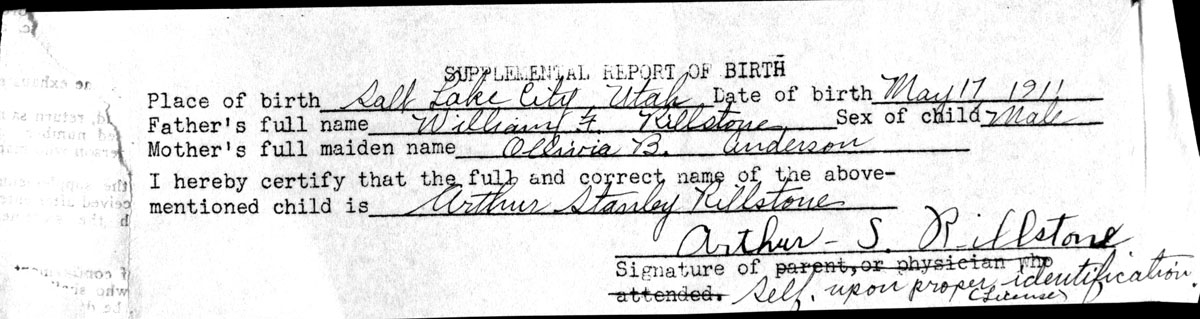 SUPPLEMENTAL REPORT OF BIRTH
Place of birth Salt Lake City, Utah Date of birth May 17 1911
Father's full name William F. Rillstone Sex of child Male
Mother's full maiden name Ollivia B. Anderson
I hereby certify that the full and correct name of the above-
mentioned child is Arthur Stanley Rillstone
Arthur - S. Rillstone
Signature of parent, or physician who
attended. Self. upon proper identification.
(License)